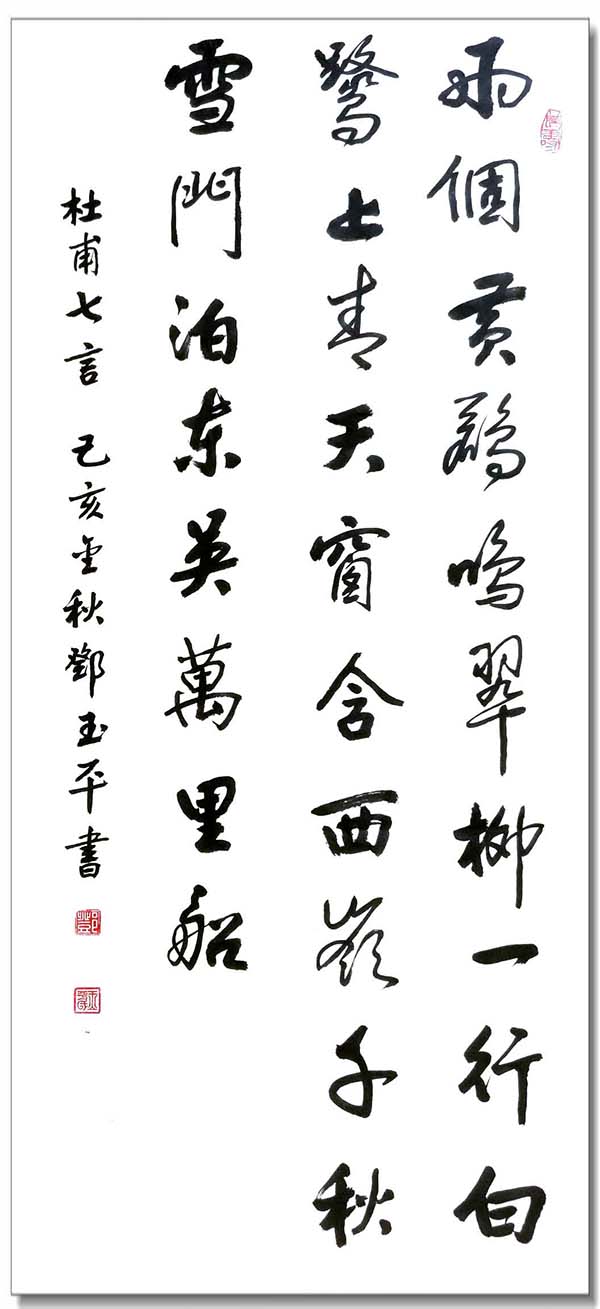 兩個黄鸝鳴翠柳一行白
鷺上青天窗含西嶺千秋
雪門泊東吳萬里船
杜甫七言 己亥金秋鄧玉平書